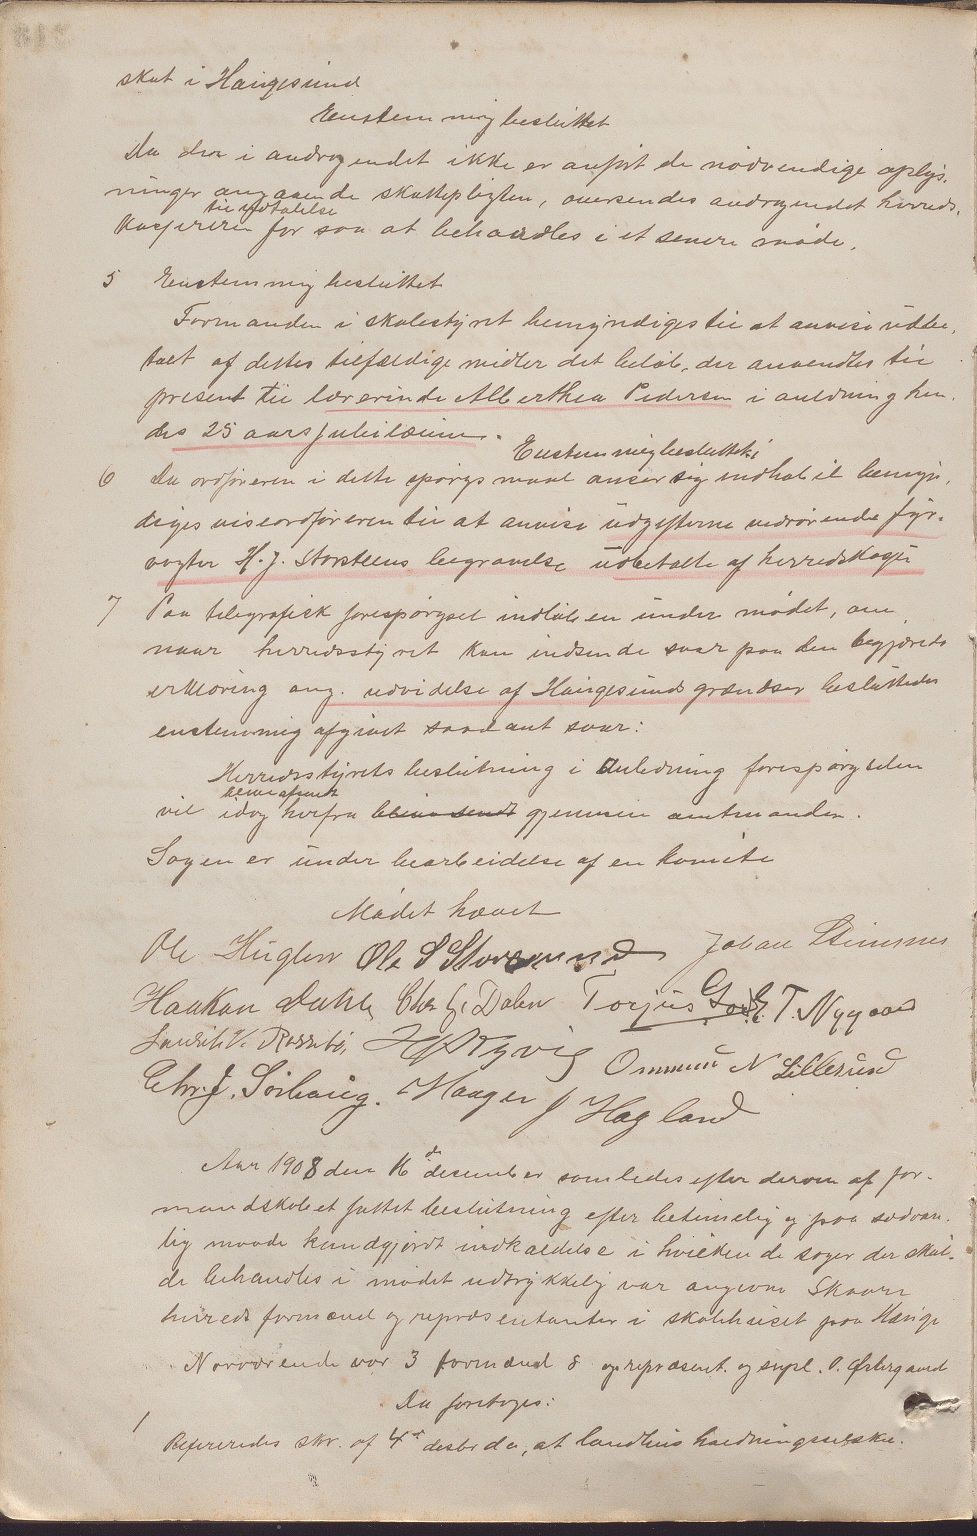 skat i Haugesund
Enstemmig besluttet
Da der i andragendet ikke er anført de nødvendige oplys-
ninger angaaende skattepligten, oversendes andragendet herreds-
til udtalelse
kassereren for saa at behandles i et senere møde.
5 Enstemmig besluttet
Formanden i skolestyret bemyndiges til at anvise udbe-
talt af dettes tilfældige midler det beløb, der anvendtes til
present til lærerinde Alberthea Pedersen i anledning hen-
des 25 aars jubilæum.
Enstemmig besluttet:
6 Da ordføreren i dette spørgsmaal anser sig indhabil bemyn-
diges viseordføreren til at anvise udgifterne vedrørende fyr-
vogter H. J. Storsteens begravelse udbetalte af herredskassen
7 Paa telegrafisk forespørgsel indløben under mødet, om
naar herredsstyret kan indsende svar paa den begjærede
erklæring ang. udvidelse af Haugesunds grændser besluttedes
enstemmig afgivet saadant svar:
Herredsstyrets beslutning i anledning forespørgselen
blive afsendt
vil idag herfra blive sendt gjennem amtmanden.
Sagen er under bearbeidelse af en komite
Mødet hævet
Ole Huglen Ole S Storesund Johan Stimnes
Haakon Dahle Chr. G. Dalen Torjus Gard E. T. Nygaard
Lauritz V. Rossebø, H Ryvig Ommund N Lillesund
Chr. J. Sørhaug. Maager J Hagland
Aar 1908 den 16de december samledes efter derom af for-
mandskabet fattet beslutning efter betimelig og paa sædvan-
lig maade kundgjordt indkaldelse i hvilken de sager der skul-
de behandles i mødet udtrykkelig var angivne Skaare
herreds formænd og repræsentanter i skolehuset paa Hauge
Nærværende var 3 formænd 8 repræsent. og supl. O. Østergaard
Da foretoges:
1 Refereredes skr. af 4de desbr da, at landhusholdningsselsk.